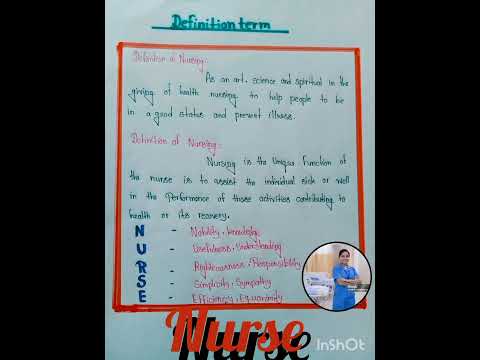 Definition term
Definition of Nursing:
As an art, science and spiritual in the
giving of health nursing to help people to be
in a good status and prevent illness.
Definition of Nursing:
Nursing is the Unique function of
the nurse is to assist the individual sick or well
in the performance of those activities contributing to
health or its recovery.
N - Nobility, knowledge
U - Usefulness, Understanding
R - Righteousness, Responsibility
S - Simplicity, Sympathy
E - Efficiency, Equanimity
Nurse
InShOt